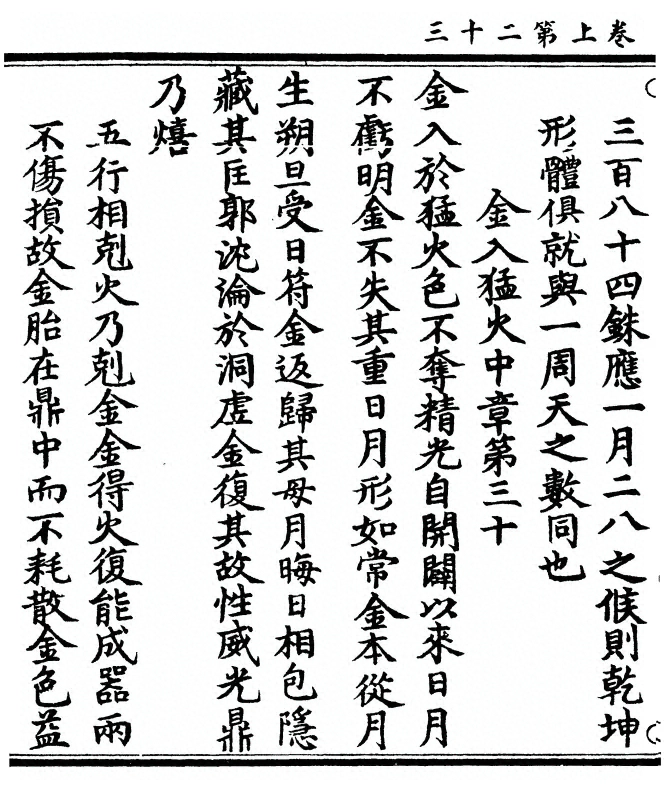 卷上第二十三
三百八十四銖應一月二八之候則乾坤
形體俱就與一周天之數同也
金入猛火中章第三十
金入於猛火色不奪精光自開闢以來日月
不虧明金不失其重日月形如常金本從月
生朔旦受日符金返歸其母月晦日相包隱
藏其匡郭沈淪於洞虛金復其故性威光鼎
乃熺
五行相剋火乃剋金金得火復能成器兩
不傷損故金胎在鼎中而不耗散金色益